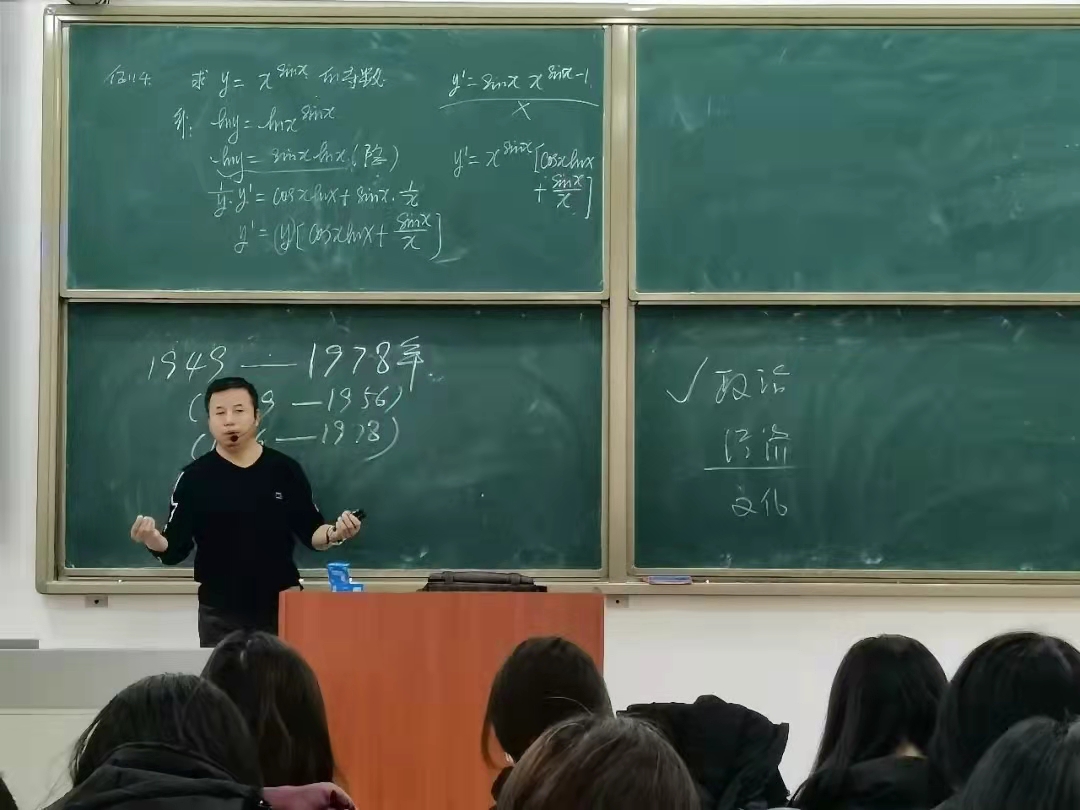 例4. 求 y = x^sinx 的导数
解: lny = lnx^sinx
lny = sinx lnx (隐)
1/y · y' = cosx lnx + sinx · 1/x
y' = y[cosx lnx + sinx/x]
y' = sinx x^sinx-1
×
y' = x^sinx [cosx lnx
+ sinx/x]
1949 — 1978年
( 9 — 1956)
( — 1978)
√ 政治
经济
文化